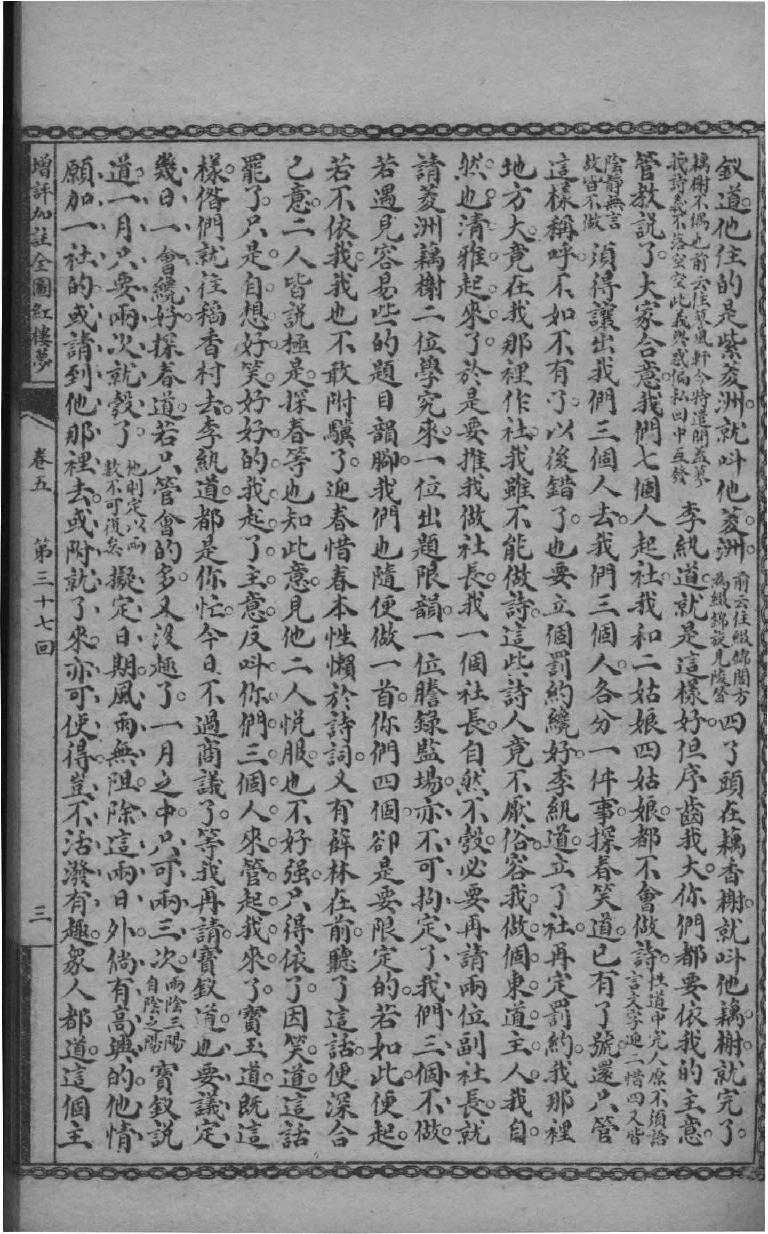 釵道他住的是紫菱洲就叫他菱洲前云住綴錦閣方為綴錦說見陵〇四了頭在藕香榭就叫他藕榭就完了
藕榭不偶也前云住蓼風軒今特遺開蓋蓼莪詩意不落空空此義與惑偏私回中互發李紈道就是這樣好但序齒我大你們都要依我的主意
管教說了大家合意我們七個人起社我和二姑娘四姑娘都不會做詩性道中完人原不須語言文字迎二惜四又皆
陰靜無言故皆不做須得讓出我們三個人去我們三個人各分一件事探春笑道已有了號還只管
這樣稱呼不如不有了以後錯了也要立個罰約纔好李紈道立了社再定罰約我那裡
地方大竟在我那裡作社我雖不能做詩這些詩人竟不厭俗容我做個東道主人我自
然也清雅起來了於是要推我做社長我一個社長自然不彀必要再請兩位副社長就
請菱洲藕榭二位學究來一位出題限韻一位謄錄監場亦不可拘定了我們三個不做
若遇見容易些的題目韻腳我們也隨便做一首你們四個卻是要限定的若如此便起
若不依我我也不敢附驥了迎春惜春本性懶於詩詞又有薛林在前聽了這話便深合
己意二人皆說極是探春等也知此意見他二人悅服也不好強只得依了因笑道這話
罷了只是自想好笑好好的我起了主意反叫你們三個人來管起我來了寶玉道既這
樣偺們就往稻香村去李紈道都是你忙今日不過商議了等我再請寶釵道也要議定
幾日一會纔好探春道若只管會的多又沒趣了一月之中只可兩三次兩陰三陽自陰之陽寶釵說
道一月只要兩次就彀了他則定以兩數不可從矣擬定日期風雨無阻除這兩日外倘有高興的他情
願加一社的或請到他那裡去或附就了來亦可使得豈不活潑有趣眾人都道這個主
增評加註全圖紅樓夢
卷五
第三十七回
三